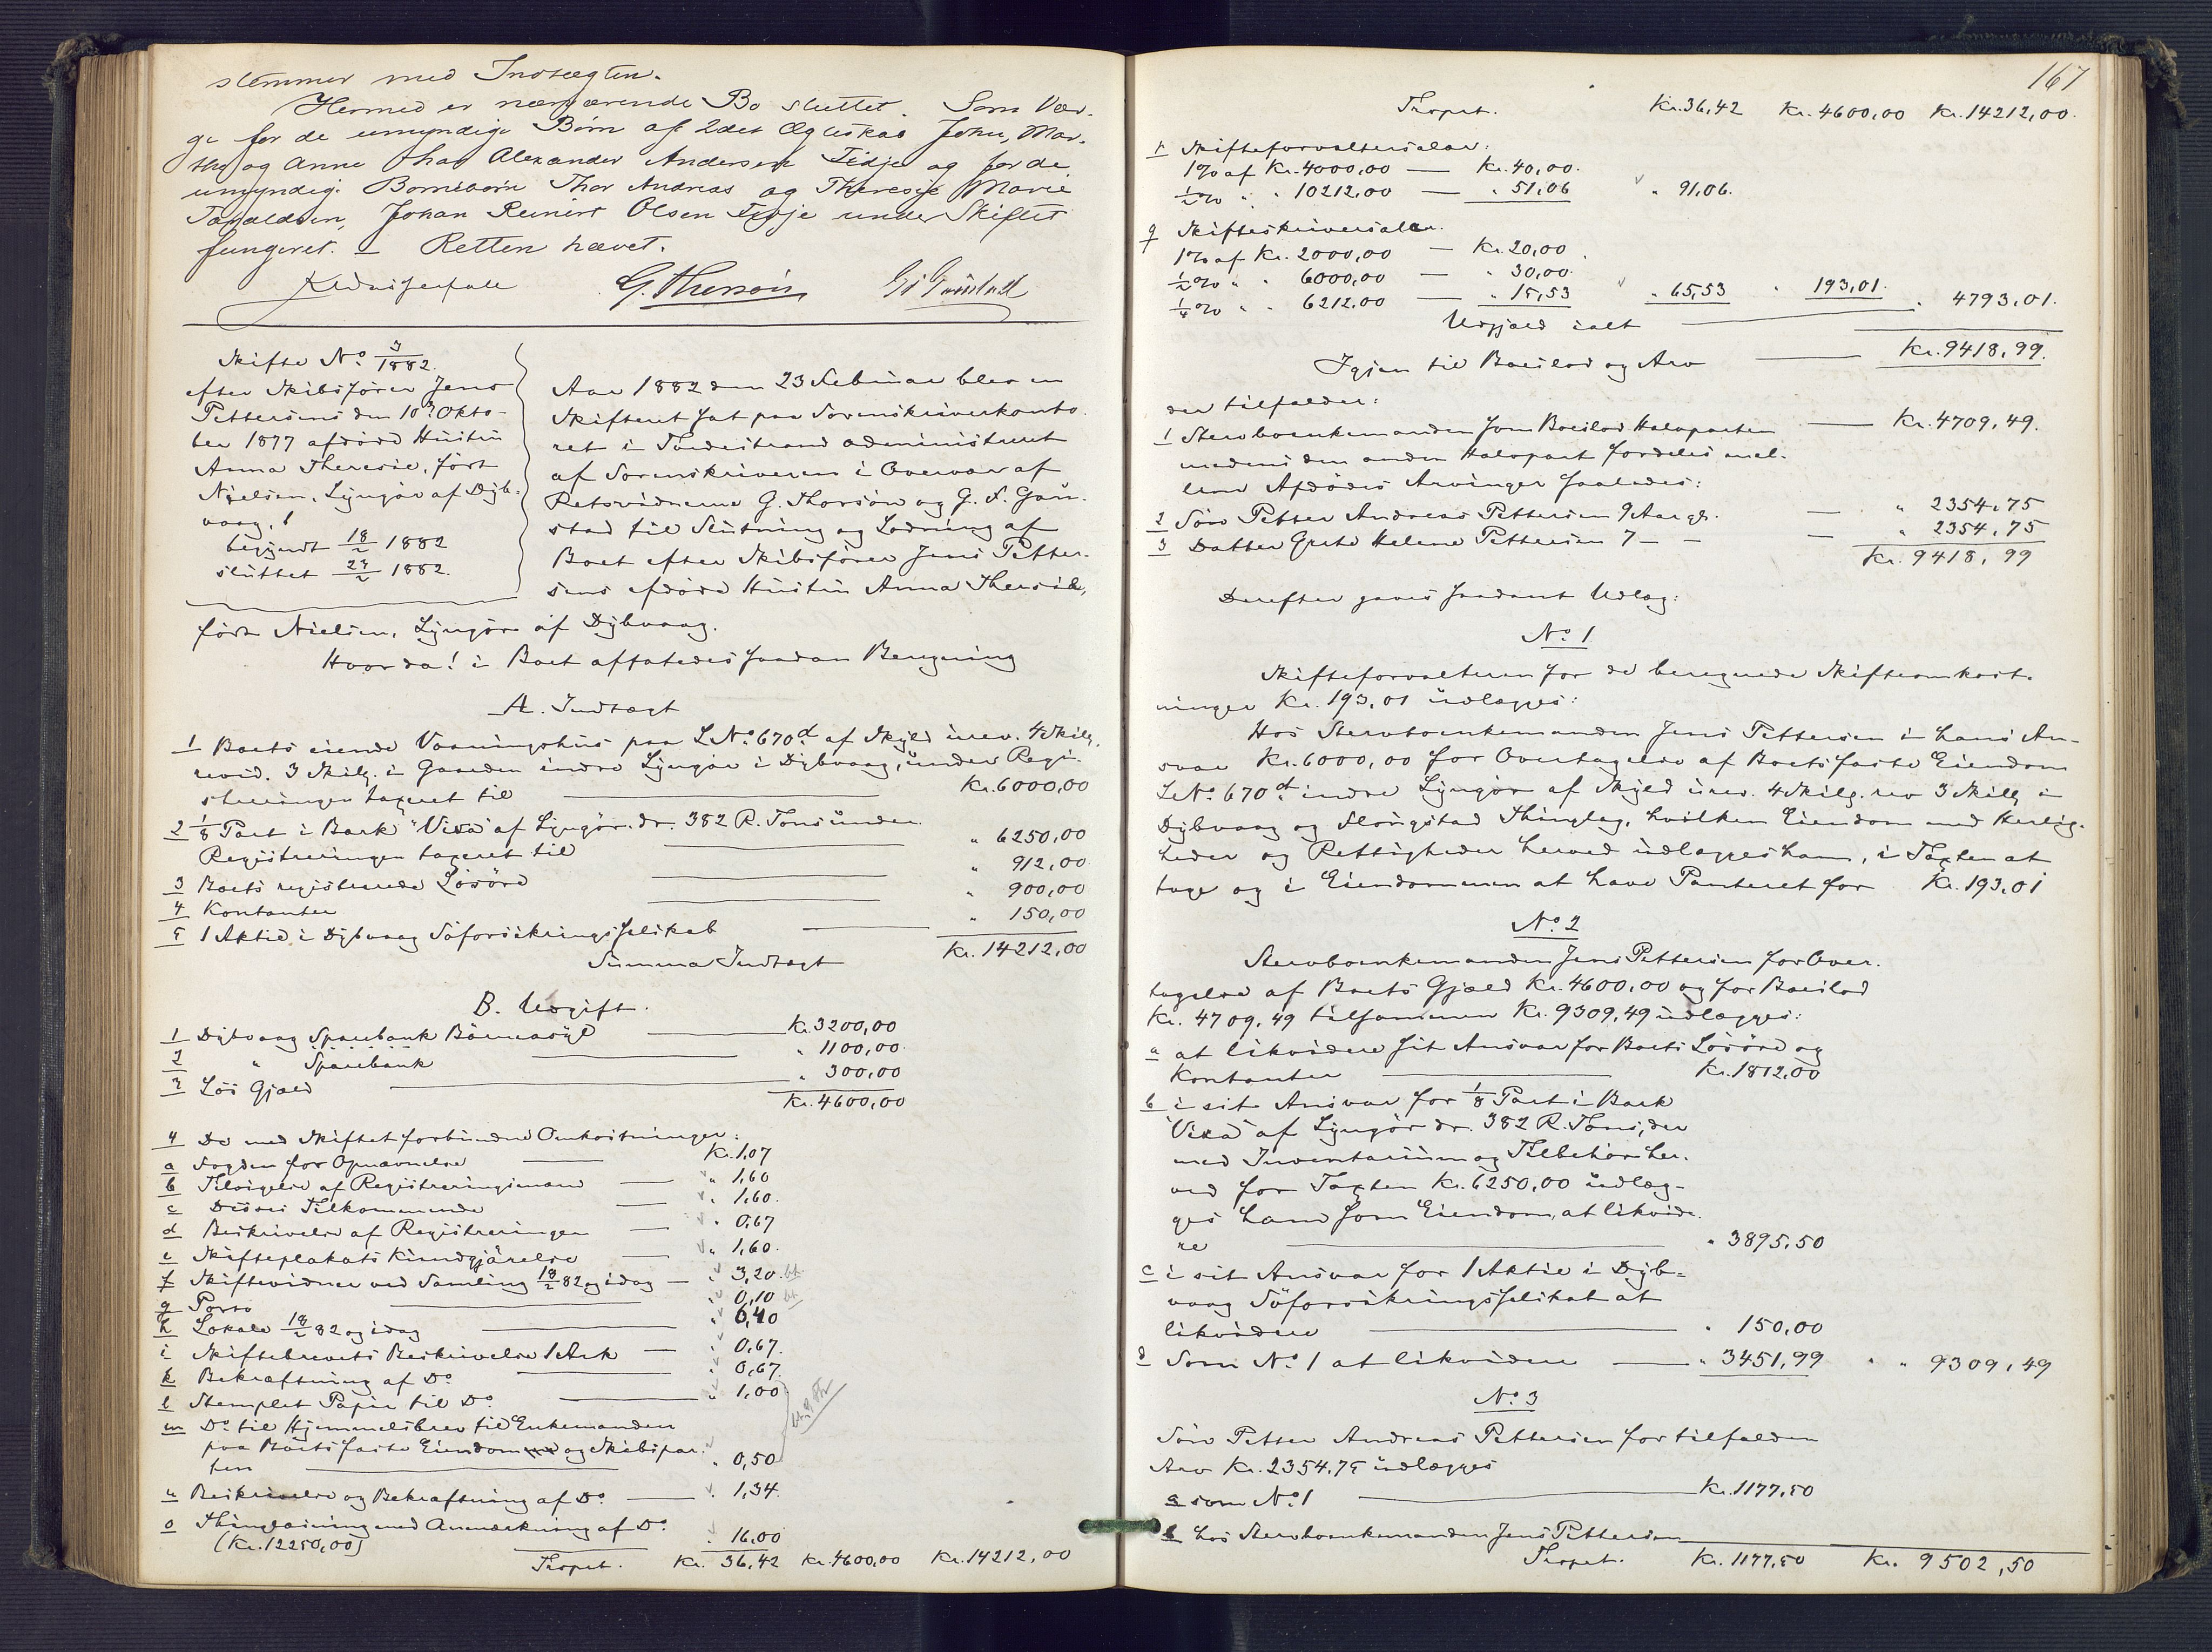 stemmer med Indtægten.
Hermed er nærværende Bo sluttet. Som Vær-
ge for de umyndige Børn af 2det Ægteskab John, Mar-
tha og Anne har Alexander Andersen Fidje og for de
umyndige Børnebørn Thor Andreas og Theresye Marie
Taraldsen, Johan Reinert Olsen Fidje under Skiftet
fungeret. – Retten hævet.
G. Thorsön
Skifte No 3/1882
efter Skibsfører Jens
Pettersens den 10de Okto-
ber 1877 afdøde Hustru
Anna Theresie, født
Nielsen, Lyngör af Dyb-
vaag,
begyndt 18/2 1882
sluttet 23/2 1882.
Aar 1882 den 23 Februar blev en
Skifteret sat paa Sorenskriverkonto-
ret i Tvedestrand administreret
af Sorenskriveren i Overvær af
Retsvidnerne G. Thorsön og G. F. Gün-
stad til Slutning og Lodning af
Boet efter Skibsfører Jens Petter-
sens afdöde Hustru Anna Theresie,
født Nielsen, Lyngör af Dybvaag.
Hvorda! i Boet affatedes saadan Beregning
A. Indtægt
1 Boets eiende Vaaningshus paa L No 670d af Skyld urev. 4 Skilg.
revid. 3 Skilg. i Gaarden indre Lyngör i Dybvaag, under Regi-
streringen taxeret til Kr. 6000,00
2 1/8 Part i Bark "Vixa" af Lyngör. dr. 382 R. Tons under
Registreringen taxeret til " 6250,00
3 Boets registrerede Lösöre " 912,00
4 Kontanter " 900,00
5 1 Aktie i Dybvaag Söforsikringsselskab " 150,00
Summa Indtægt Kr. 14212,00
B. Udgift.
1 Dybvaag Sparebank Börneasyl Kr. 3200,00
2 " Sparebank " 1100,00
3 Lös Gjæld " 300,00
Kr. 4600,00
4 De med Skiftet forbundne Omkostninger:
a Fogden for Opnævnelse Kr. 1,07
b Tilsigelse af Registreringsmænd " 1,60
c Disses Tilkommende " 1,60.
d Beskrivelse af Registreringen " 0,67
e Skifteplakats Kundgjörelse " 1,60.
f Skiftevidner ved Samling 18/2 82 og idag " 3,20
g Porto " 0,10
h Lokale 18/2 82 og idag " 6,40
i Skiftebrevets Beskrivelse 1 Ark " 0,67.
k Bekræftning af Do " 0,67
l Stemplet Papir til Do " 1,00
m Do til Hjemmelsbrev til Enkemanden
paa Boets faste Eiendom og Skibspar-
ten " 0,50
n Beskrivelse og Bekræftning af Do " 1,34.
o Thinglæsning med Anmærkning af Do
(Kr. 12250,00) " 16,00
Trspt. Kr. 36,42 Kr. 4600,00 Kr. 14212,00
167
Trspt. Kr. 36,42 Kr. 4600,00 Kr. 14212,00.
Skifteforvaltersalær:
1% af Kr. 4000,00 — Kr. 40,00.
1/2% " " 10212,00 — " 51,06 " 91,06.
q Skifteskriversalær.
1% af Kr. 2000,00 — Kr. 20,00
1/2% " " 6000,00 — " 30,00.
1/4% " " 6212,00 — " 15,53 " 65,53 " 193,01. " 4793,01.
Udgjæld ialt
Igjen til Boeslod og Arv Kr. 9418,99.
der tilfalder:
1 Stervboenkemanden som Boeslod Halvparten — Kr. 4709,49.
medens den anden Halvpart fordeles mel-
lem Afdödes Arvinger saaledes:
2 Sön Petter Andreas Pettersen 9 Aar gl. — " 2354,75
3 Datter Grete Helene Pettersen 7 — — " 2354,75
Kr. 9418,99
Derefter gaves saadant Udlæg:
No 1
Skifteforvalteren for de beregnede Skifteomkost-
ninger Kr. 193,01 udlægges:
Hos Stervboenkemanden Jens Pettersen i hans An-
svar Kr. 6000,00 for Overtagelse af Boets faste Eiendom
L No 670d indre Lyngör af Skyld urev. 4 Skilg. rev 3 Skilg i
Dybvaag og Flougstad Thinglag, hvilken Eiendom med Herlig-
heder og Rettigheder herved udlægges ham, i Taxten at
tage og i Eiendommen at have Panteret for Kr. 193,01
No 2
Stervboenkemanden Jens Pettersen for Over-
tagelse af Boets Gjæld Kr. 4600,00 og for Boeslod
Kr. 4709,49 tilsammen Kr. 9309,49 udlægges:
a at likvidere sit Ansvar for Boets Lösöre og
Kontanter Kr. 1812,00
b i sit Ansvar for 1/8 Part i Bark
"Vixa" af Lyngör dr. 382 R. Tons, der
med Inventarium og Tilbehör her-
ved for Taxten Kr. 6250,00 udlæg-
ges ham som Eiendom, at likvide-
re " 3895,50
c i sit Ansvar for 1 Aktie i Dyb-
vaag Söforsikringsselskab at
likvidere " 150,00
d Som No 1 at likvidere " 3451,99 " " 9309,49
No 3
Sön Petter Andreas Pettersen for tilfalden
Arv Kr. 2354,75 udlægges
a som No 1 Kr. 1177,50
b hos Stervboenkemanden Jens Pettersen
Trspt. Kr. 1177,50 Kr. 9502,50